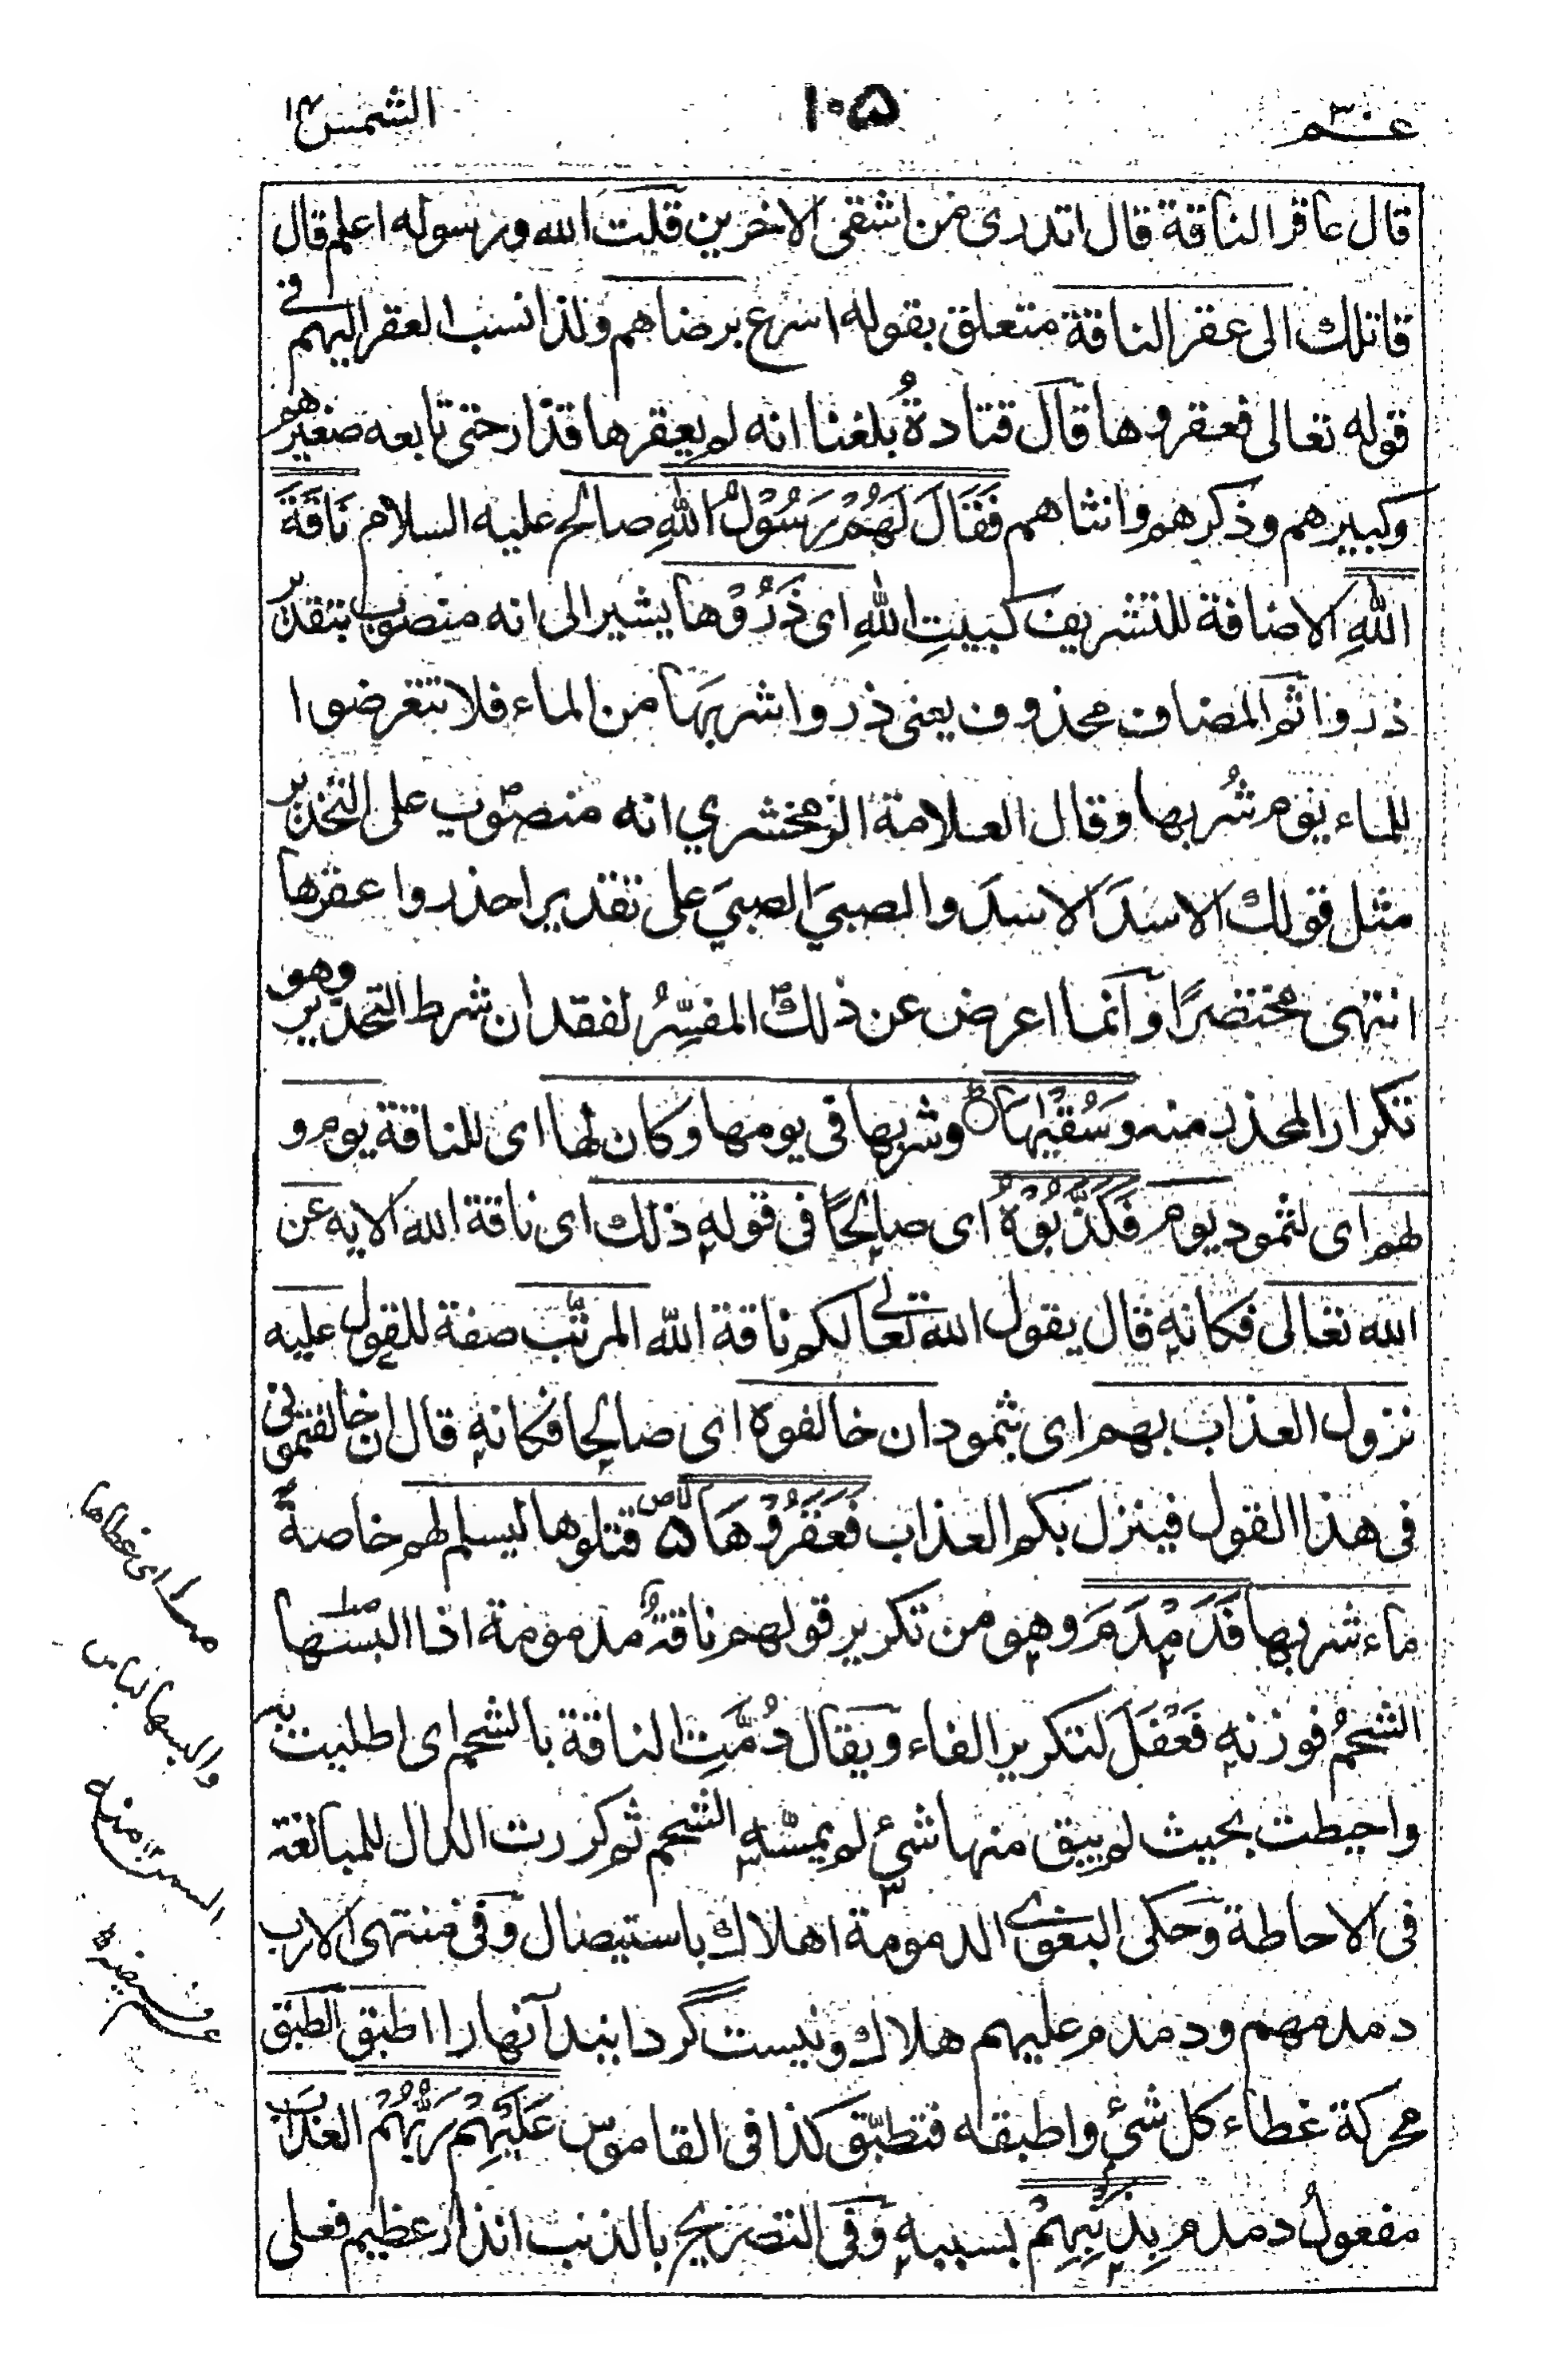 عم ٣٠ ١٠٥ الشمس ٩١
قال عاقر الناقة قال اتدرى من اشقى الاخرين قلت الله ورسوله اعلم قال
قاتلك الى عقر الناقة متعلق بقوله اسرع برضاهم ولذا نسب العقر اليهم فى
قوله تعالى فعقروها قال قتادةُ بلغنا انه لم يعقرها قذار حتى تابعه صغيرهم
وكبيرهم وذكرهم وانثاهم فَقَالَ لَهُمْ رَسُوْلُ اللهِ صالح عليه السلام نَاقَةَ
اللهِ الاضافة للتشريف كبيتِ اللهِ اى ذَرُوْها يشير الى انه منصوب بتقدير
ذروا ثم المضاف محذوف يعنى ذروا شربَها من الماء فلا تتعرضوا
للماء يوم شُربها وقال العلامة الزمخشري انه منصوب على التحذير
مثل قولك الاسدَ الاسدَ والصبيَ الصبيَ على تقدير احذروا عقرها
انتهى مختصرًا وانما اعرض عن ذلك المفسِّرُ لفقدان شرط التحذير وهو
تكرار المحذر منه وَسُقْيٰهَا وشربها فى يومها وكان لها اى للناقة يوم و
لهم اى لثمود يوم فَكَذَّبُوْهُ اى صالحًا فى قوله ذلك اى ناقة الله الايه عن
الله تعالى فكانه قال يقول الله تعالى لكم ناقة الله المرتّب صفة للقول عليه
نزول العذاب بهم اى بثمود ان خالفوه اى صالحا فكانه قال ان خالفتمونى
فى هذا القول فينزل بكم العذاب فَعَقَرُوْهَا ۵ قتلوها ليسلم لهم خاصةً
ماء شربها فَدَمْدَمَ وهو من تكرير قولهم ناقةٌ مدمومة اذا البسها
الشحمُ فوزنه فَعْفَلَ لتكرير الفاء ويقال دُمَّتِ الناقة بالشحم اى اطليت به
واحيطت بحيث لم يبق منها شئ لم يمسّه الشحم ثم كررت الدال للمبالغة
فى الاحاطة وحكى البغوى الدمومة اهلاك باستيصال وفى منتهى الارب
دمدمهم ودمدم عليهم هلاك ونيست گردانيد آنها را اطبق الطبق
محركة غطاء كل شئ واطبقه فتطبّق كذا فى القاموس عَلَيْهِمْ رَبُّهُمْ العذاب
مفعولُ دمدم بِذَنْبِهِمْ بسببه وفى التصريح بالذنب انذار عظيم فعلى